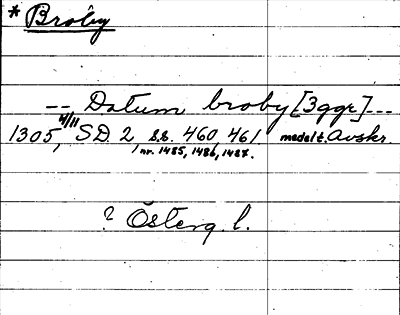 * Broby
-- Datum broby [3ggr] ---
1305, 4/11 SD. 2, s.s. 460, 461. medelt. Avskr.
nr. 1485, 1486, 1487.
? Österg. l.